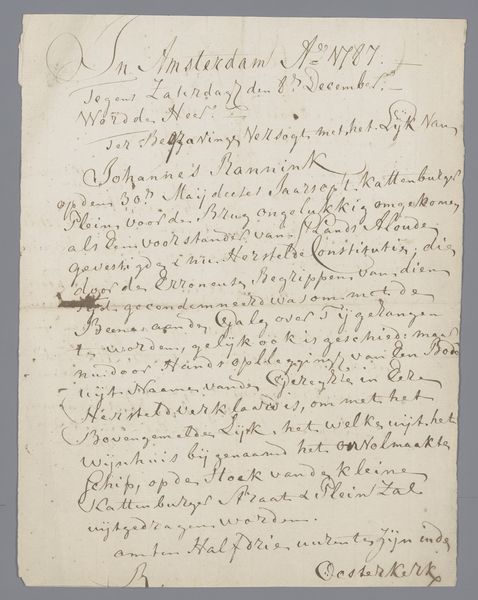 In Amsterdam A° 1787.
Tegens Zaterdag den 8n December
Wordde Heer
Ter Begraving Versogt met het Lijk Van
Johannes Rannink
op den 30n Maij deeses Jaars op 't Kattenburger
Plein voor de Brug ongelukkig omgekomen
als Een voorstander van 's Lands Aloude
gevestigde & nu Herstelde Constitutie, die
door de Erroneuse Begrippen van dien
Tijd gecondemneerd was om met de
Beenen aan de Galg over Tij gehangen
te worden, gelijk ook is geschied: maar
nu door Hands oplegging van den Bode
uijt Naame van de Geregte in Eere
Hersteld verklaard is, om met het
Bovengemelde Lijk, het welke uijt het
Wijnhuis bij genaamd het onVolmaakte
Schip, op de Hoek van de kleine
Kattenburger Straat & Plein Zal
uijtgedragen worden.
om ten Half drie uuren te Zijn in de
Oosterkerk